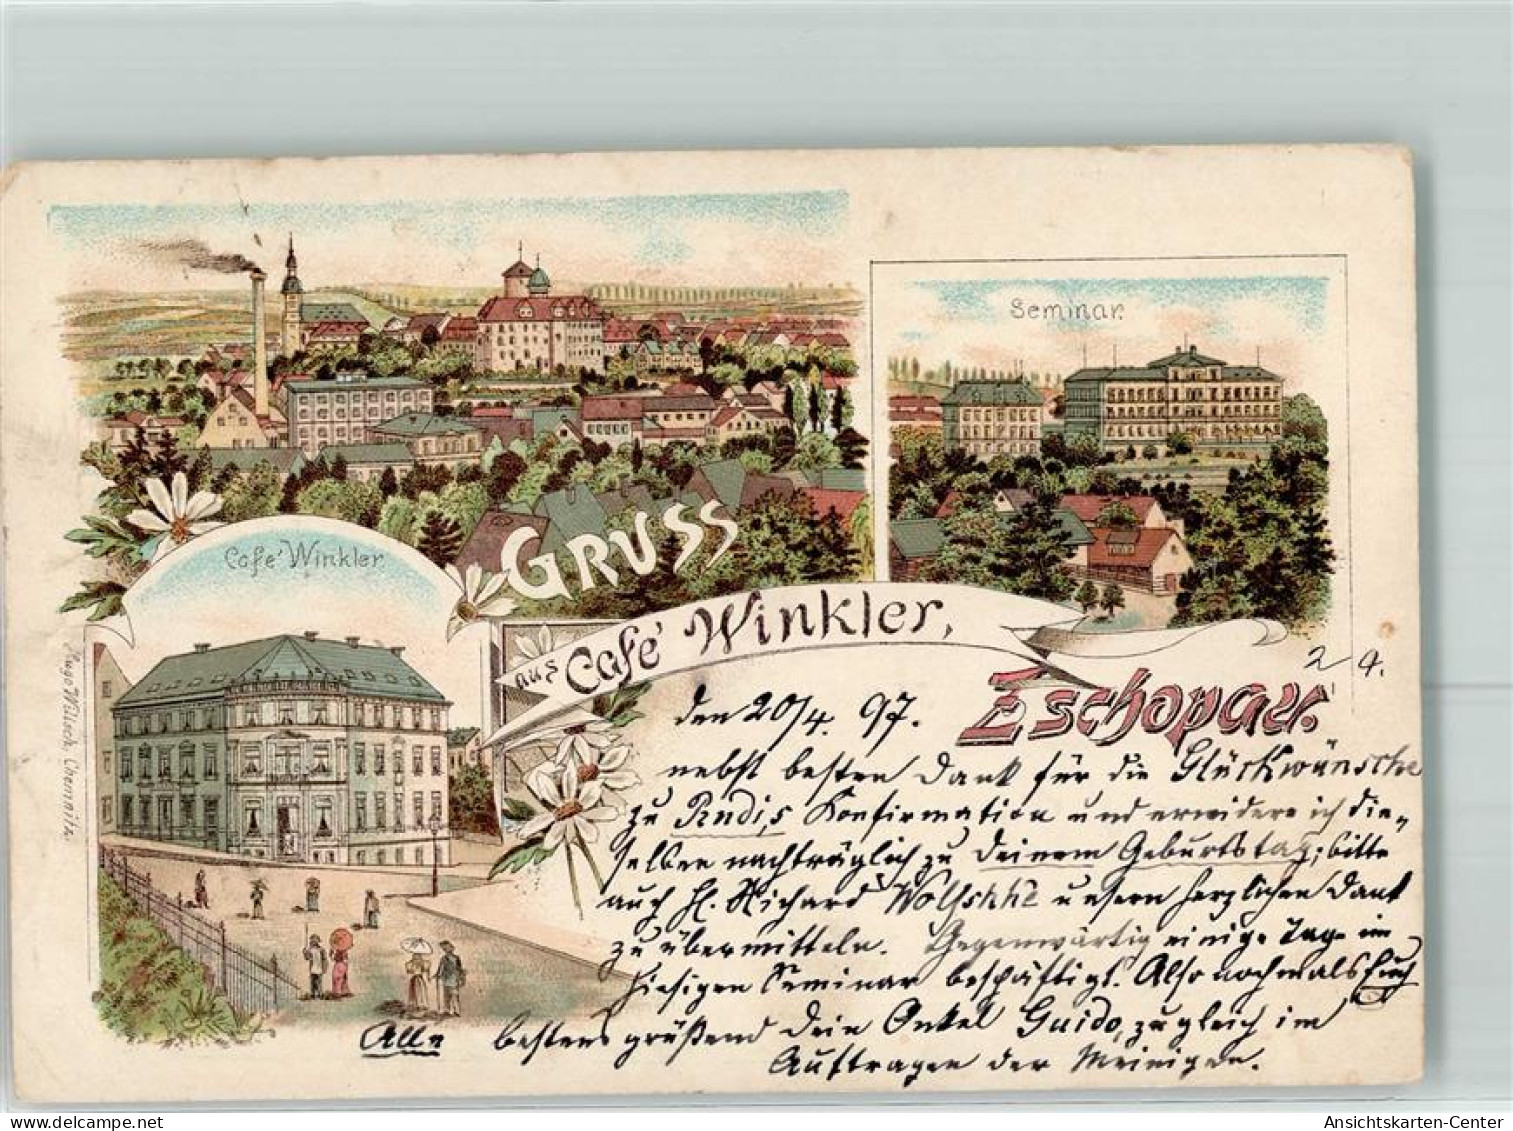 Seminar.
Café Winkler
GRUSS
aus Café Winkler,
Zschopau.
Hugo Wilisch, Chemnitz.
2 4.
den 20/4. 97.
nebst besten Dank für die Glückwünsche
zu Rudi,s Konfirmation und erwidere ich die-
selben nachträglich zu Deinem Geburtstag; bitte
auch H. Richard unsern herzlichen Dank
zu übermitteln. Gegenwärtig einige Tage im
hiesigen Seminar beschäftigt. Also nochmals Euch
Alle bestens grüßend Dein Onkel Guido, zugleich im
Auftragen der Meinigen.
Ansichtskarten-Center